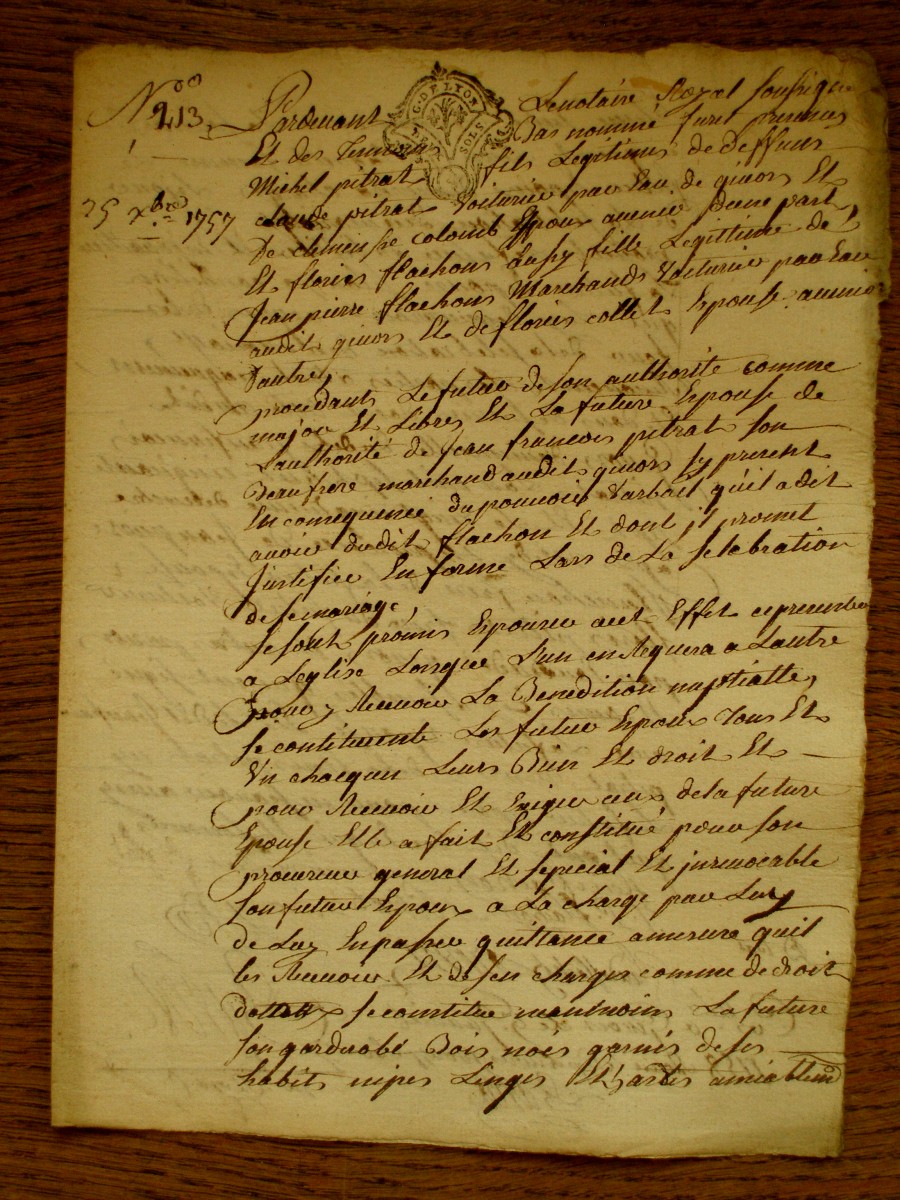 Nº 213
25 xbre 1757
G. DE LYON
SOLS
Pardevant Le notaire Royal soussigné
Et des Temoins Bas nommé furet presents
Michel pitrat fils Legitime de deffunt
claude pitrat Voiturier par Eau de givors Et
De clemense colomb Epoux avenir d'une part
Et florie flachons aussy fille Legittime de
Jean pierre flachons Marchands Voiturier par Eau
audit givors Et de florie collet Epouse avenir
Dautre,
procedants Le futur de son authorité comme
majeur Et Libres Et La future Epouse de
Lauthorité de Jean francois pitrat son
Beaufrere marchand audit givors Icy present
En consequence du pouvoir Varbail quil a dit
avoir dudit flachon Et dont jl promet
Justifier En forme Lors de La selebration
de se mariage,
se sont promis Epouser a cet Effet ce presenter
a Leglise Lorsque L'un en Requera a Lautre
pour y Recevoir La Benedition nuptiatte,
se constituent Les futur Epoux Tous Et
Un chacqun Leurs Bien Et droit Et
pour Recevoir Et Exiger ceux de la future
Epouse Elle a fait Et constitué pour son
procureur general Et special Et jrrevocable
son futur Epoux a La charge par Luy
de Luy En passer quittance a mesure quil
les Recevoir Et de sen charger comme de droit
se constitue neanmoins La future
son garderobe Bois noés garnis de ses
habits nipes Linges Et hardes amiablemt